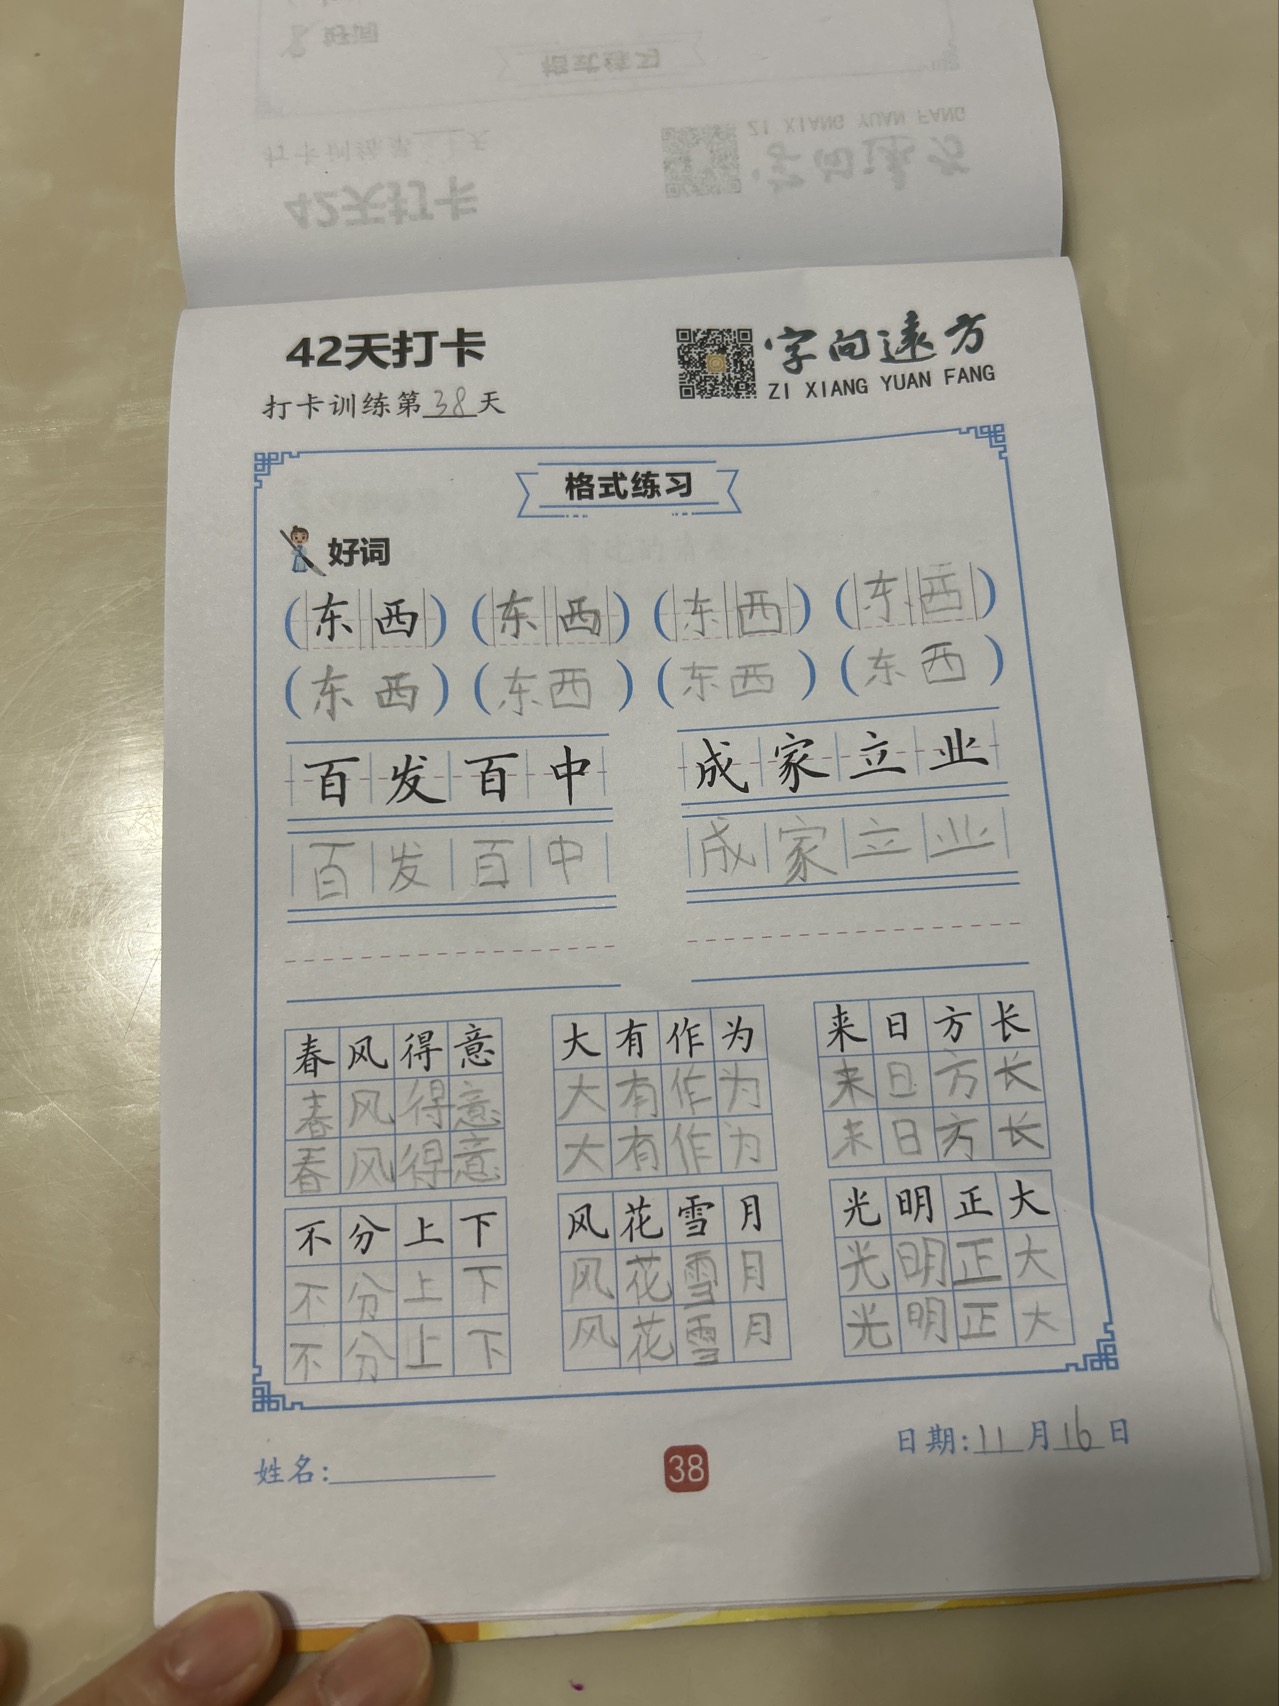 好词
格式练习
ZI XIANG YUAN FANG
打卡训练第 天
字向遠方
42天打卡
42天打卡
字向遠方
ZI XIANG YUAN FANG
打卡训练第38天
格式练习
好词
(东西) (东西) (东西) (东西)
(东西) (东西) (东西) (东西)
百发百中 成家立业
百发百中 成家立业
春风得意 大有作为 来日方长
春风得意 大有作为 来日方长
春风得意 大有作为 来日方长
不分上下 风花雪月 光明正大
不分上下 风花雪月 光明正大
不分上下 风花雪月 光明正大
日期:11月16日
姓名:
38